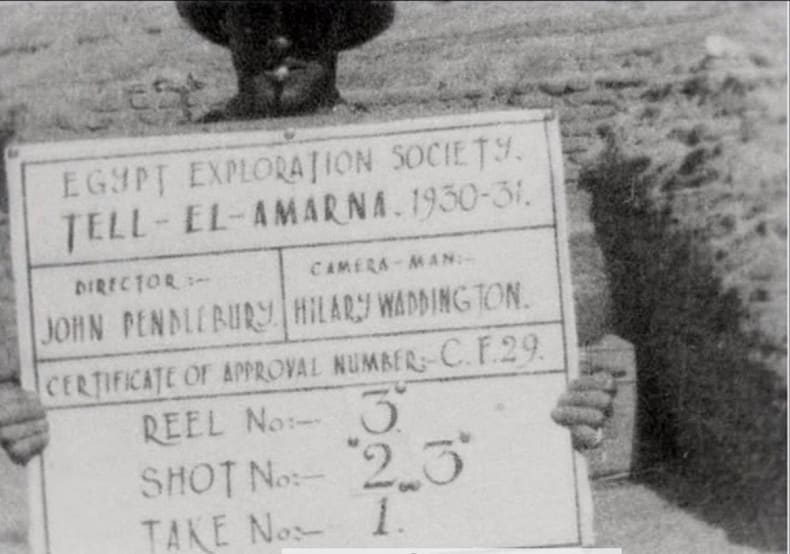 EGYPT EXPLORATION SOCIETY.
TELL-EL-AMARNA. 1930-31.
DIRECTOR:-
JOHN PENDLEBURY.
CAMERA-MAN:-
HILARY WADDINGTON.
CERTIFICATE OF APPROVAL NUMBER:- C.F.29.
REEL No:- "3"
SHOT No:- "2-3"
TAKE No:- 1.